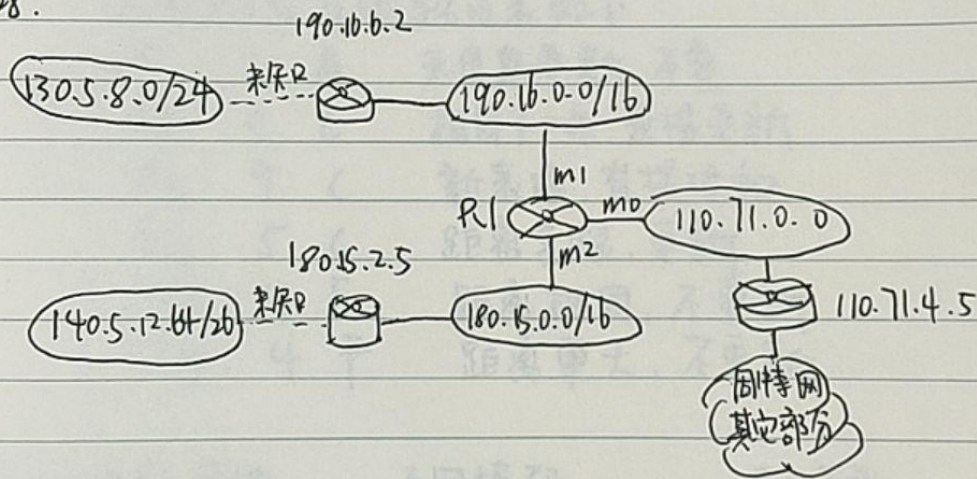 28.
190.16.6.2
130.5.8.0/24
未知
190.16.0.0/16
m1
R1
m0
110.71.0.0
m2
180.15.2.5
140.5.12.64/26
未知
180.15.0.0/16
110.71.4.5
因特网
其它部分